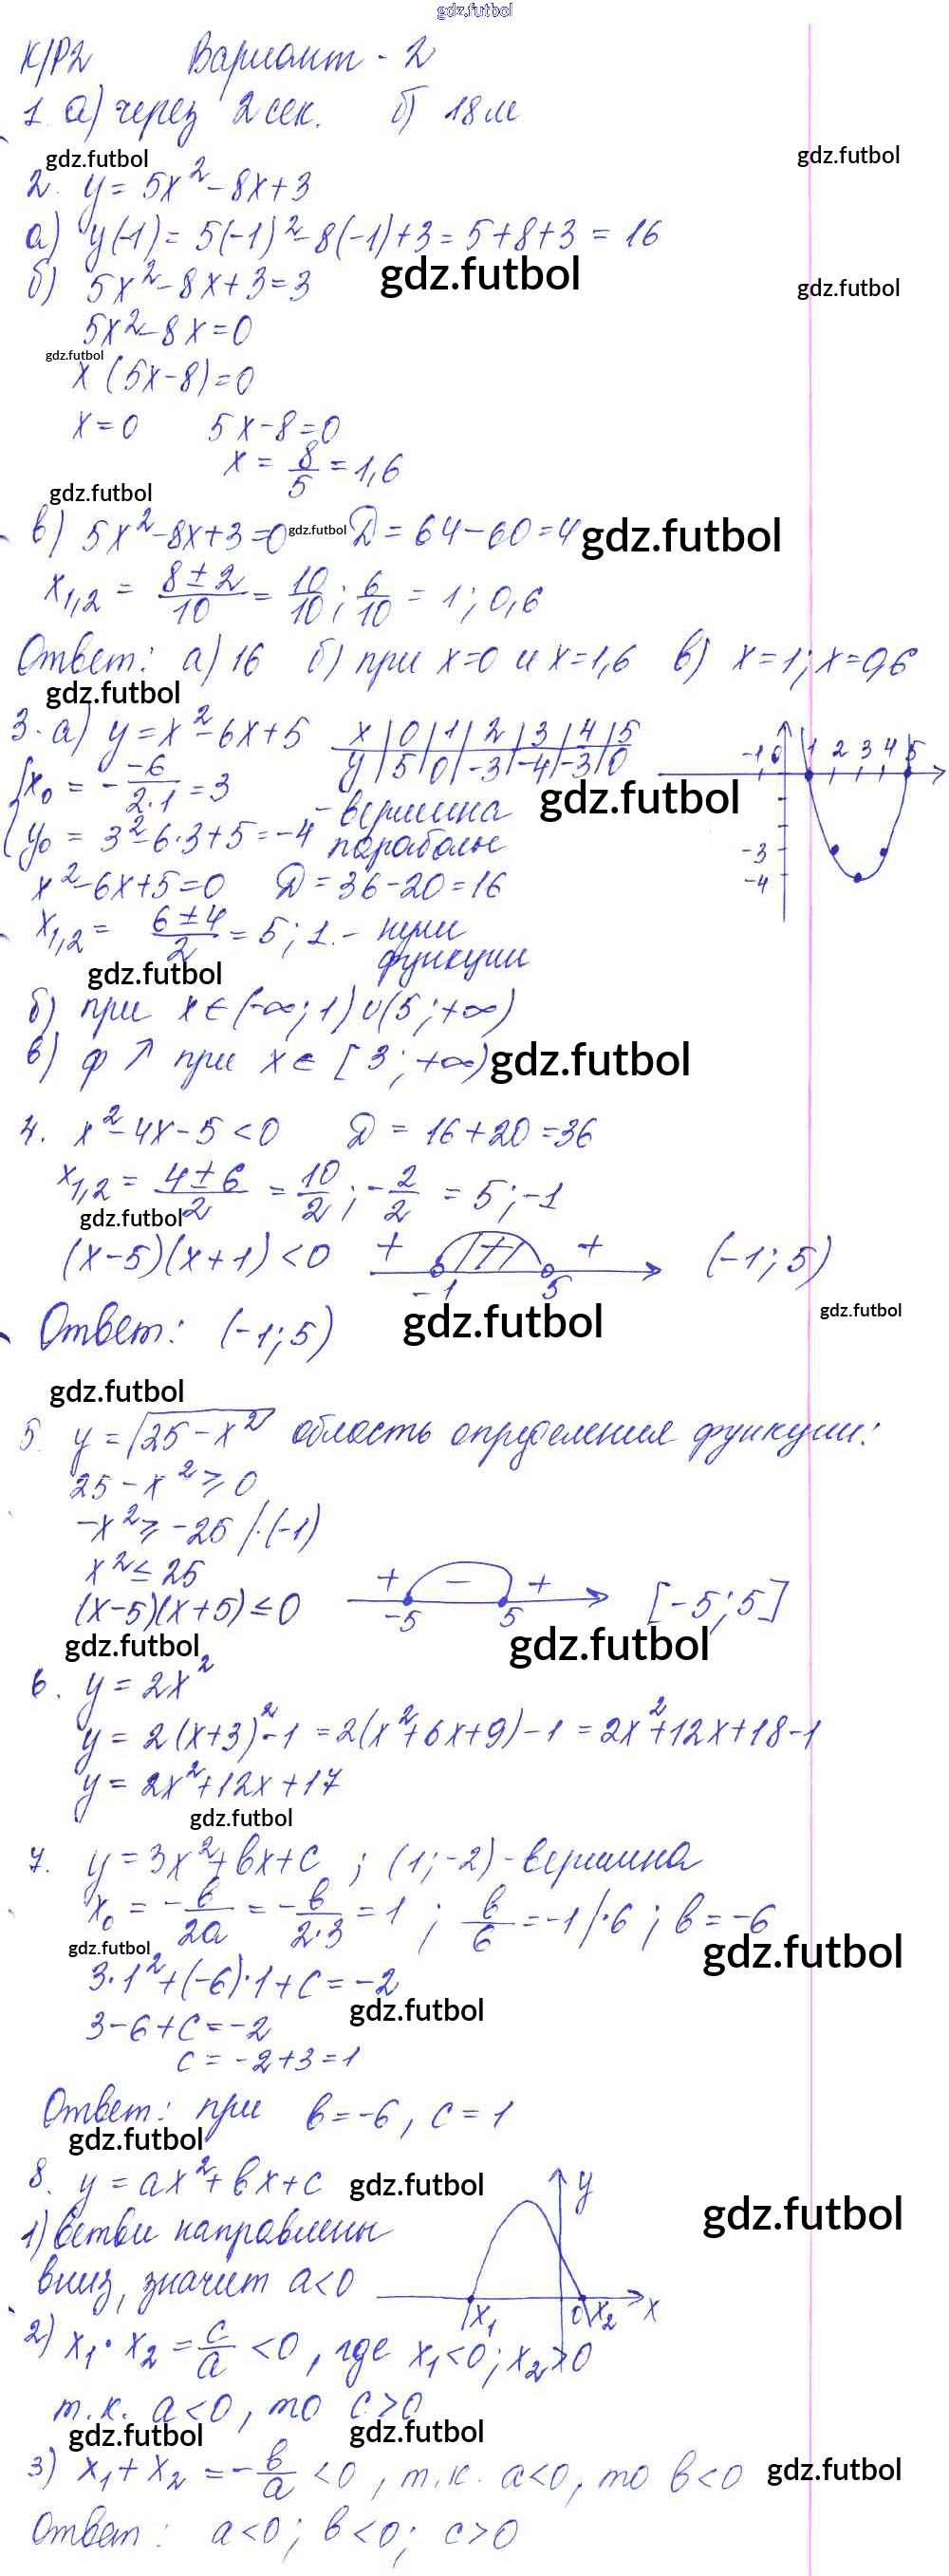 gdz.futbol
К/Р2 Вариант - 2
1 а) через 2 сек. б) 18 м
gdz.futbol gdz.futbol
2. y = 5x² - 8x + 3
а) y(-1) = 5(-1)² - 8(-1) + 3 = 5 + 8 + 3 = 16
gdz.futbol gdz.futbol
б) 5x² - 8x + 3 = 3
5x² - 8x = 0
gdz.futbol
x (5x - 8) = 0
x = 0 5x - 8 = 0
x = 8/5 = 1,6
gdz.futbol
в) 5x² - 8x + 3 = 0 gdz.futbol Д = 64 - 60 = 4 gdz.futbol
x₁,₂ = (8 ± 2)/10 = 10/10 ; 6/10 = 1 ; 0,6
Ответ: а) 16 б) при x=0 и x=1,6 в) x=1; x=0,6
gdz.futbol
3. а) y = x² - 6x + 5 x | 0 | 1 | 2 | 3 | 4 | 5
y | 5 | 0 | -3 | -4 | -3 | 0
-1 0 1 2 3 4 5
x₀ = - -6/2·1 = 3 gdz.futbol
y₀ = 3² - 6·3 + 5 = -4 - вершина параболы
-3
-4
x² - 6x + 5 = 0 Д = 36 - 20 = 16
x₁,₂ = (6 ± 4)/2 = 5 ; 1. - нули функции
gdz.futbol
б) при x ∈ (-∞; 1) ∪ (5; +∞)
в) ф ↗ при x ∈ [3; +∞) gdz.futbol
4. x² - 4x - 5 < 0 Д = 16 + 20 = 36
x₁,₂ = (4 ± 6)/2 = 10/2 ; -2/2 = 5 ; -1
gdz.futbol
(x - 5)(x + 1) < 0 + + (-1; 5)
-1 5
gdz.futbol gdz.futbol
Ответ: (-1; 5)
gdz.futbol
5. y = √(25 - x²) область определения функции:
25 - x² ≥ 0
-x² ≥ -25 /·(-1)
x² ≤ 25
(x-5)(x+5) ≤ 0 + - + [-5; 5]
-5 5
gdz.futbol gdz.futbol
6. y = 2x²
y = 2(x+3)² - 1 = 2(x² + 6x + 9) - 1 = 2x² + 12x + 18 - 1
y = 2x² + 12x + 17
gdz.futbol
7. y = 3x² + bx + c ; (1; -2) - вершина
x₀ = - b/2a = - b/2·3 = 1 ; b/6 = -1 /·6 ; b = -6
gdz.futbol gdz.futbol
3·1² + (-6)·1 + c = -2
gdz.futbol
3 - 6 + c = -2
c = -2 + 3 = 1
Ответ: при b = -6, c = 1
gdz.futbol
8. y = ax² + bx + c gdz.futbol y
gdz.futbol
1) ветви направлены
вниз, значит a<0
x₁ 0 x₂ x
2) x₁ · x₂ = c/a < 0, где x₁<0; x₂>0
т.к. a<0, то c>0
gdz.futbol gdz.futbol
3) x₁ + x₂ = - b/a < 0, т.к. a<0, то b<0 gdz.futbol
Ответ: a<0; b<0; c>0